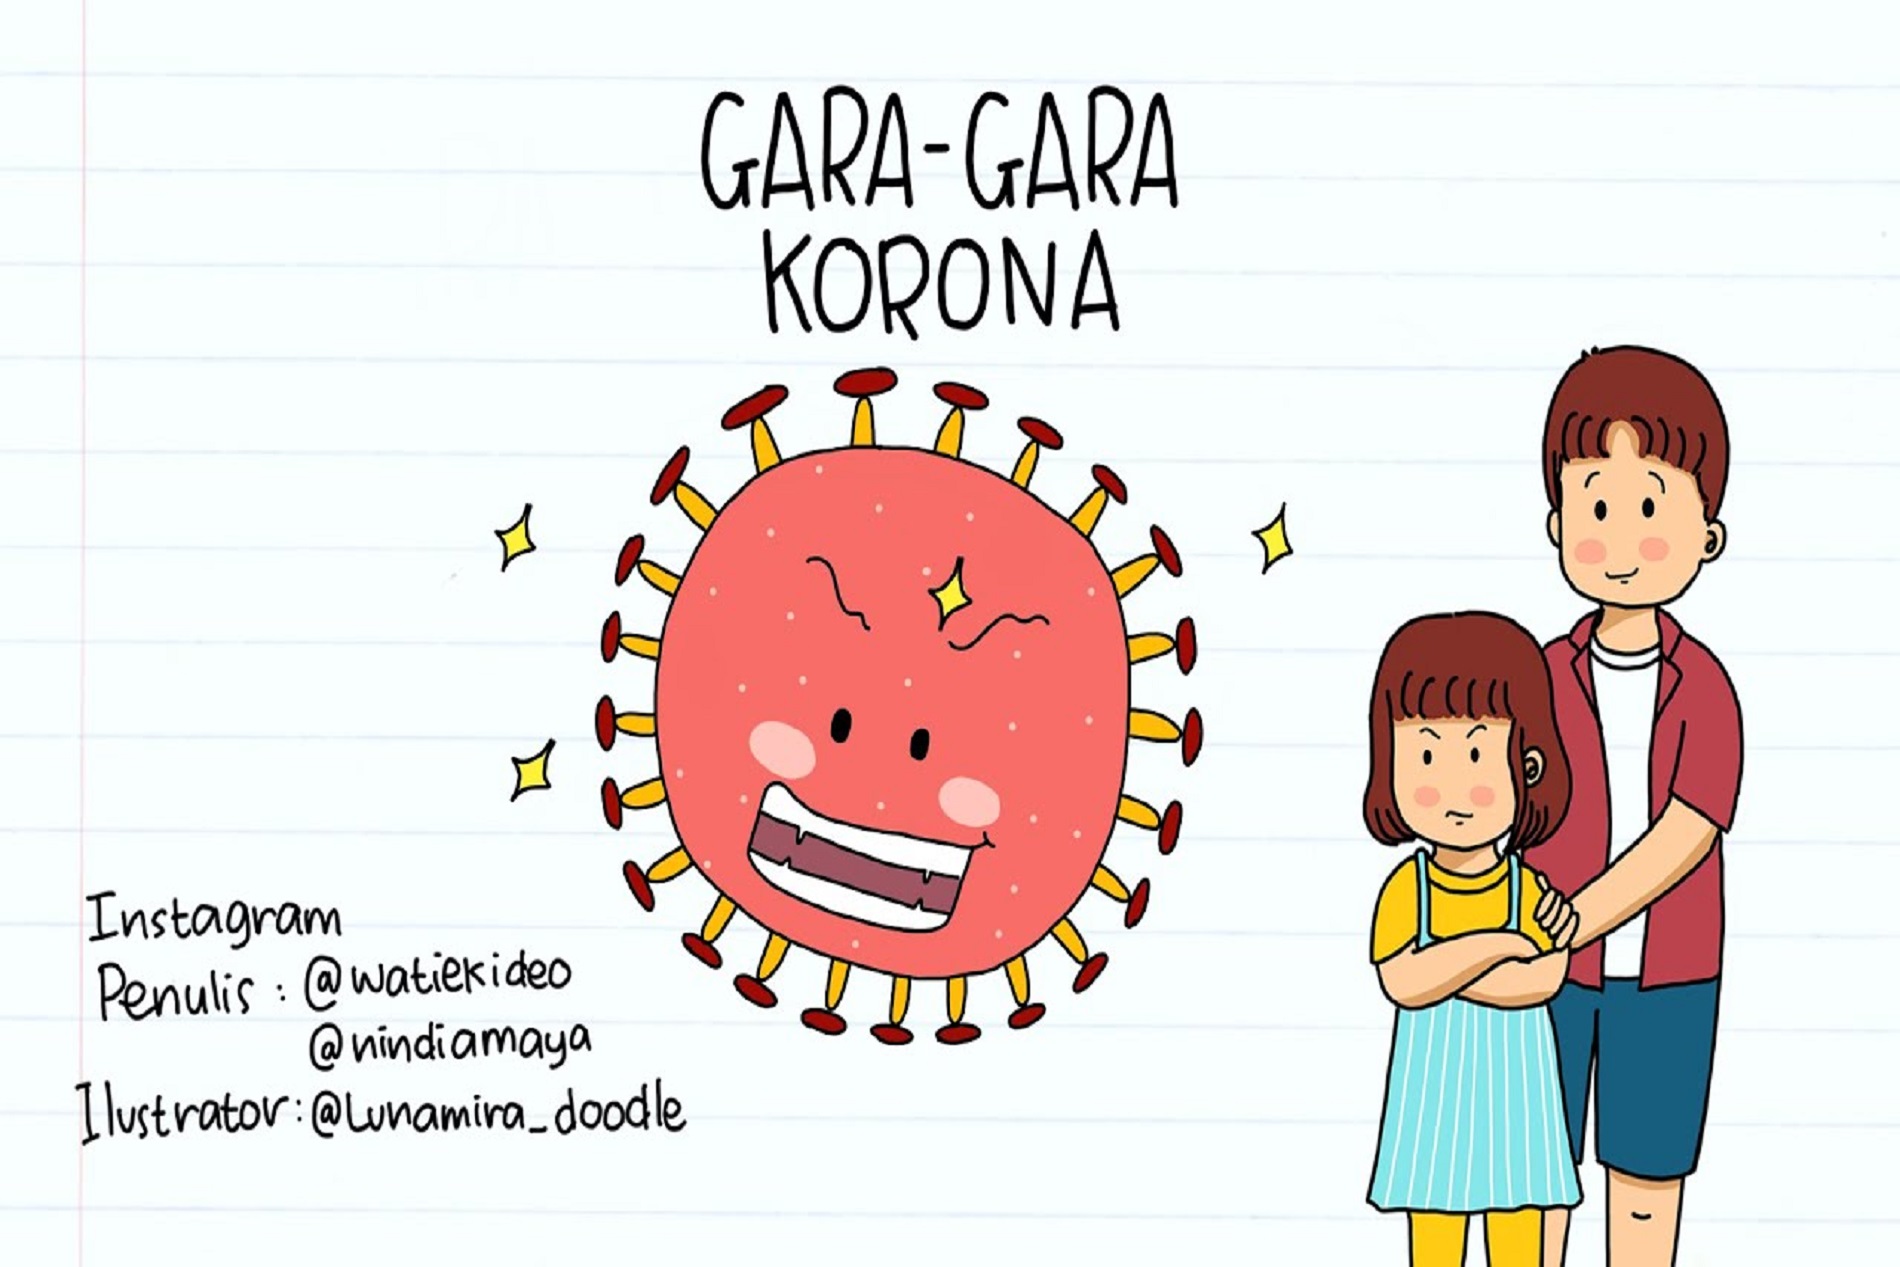 GARA-GARA
KORONA
Instagram
Penulis : @watiekideo
@nindiamaya
Ilustrator: @Lunamira_doodle